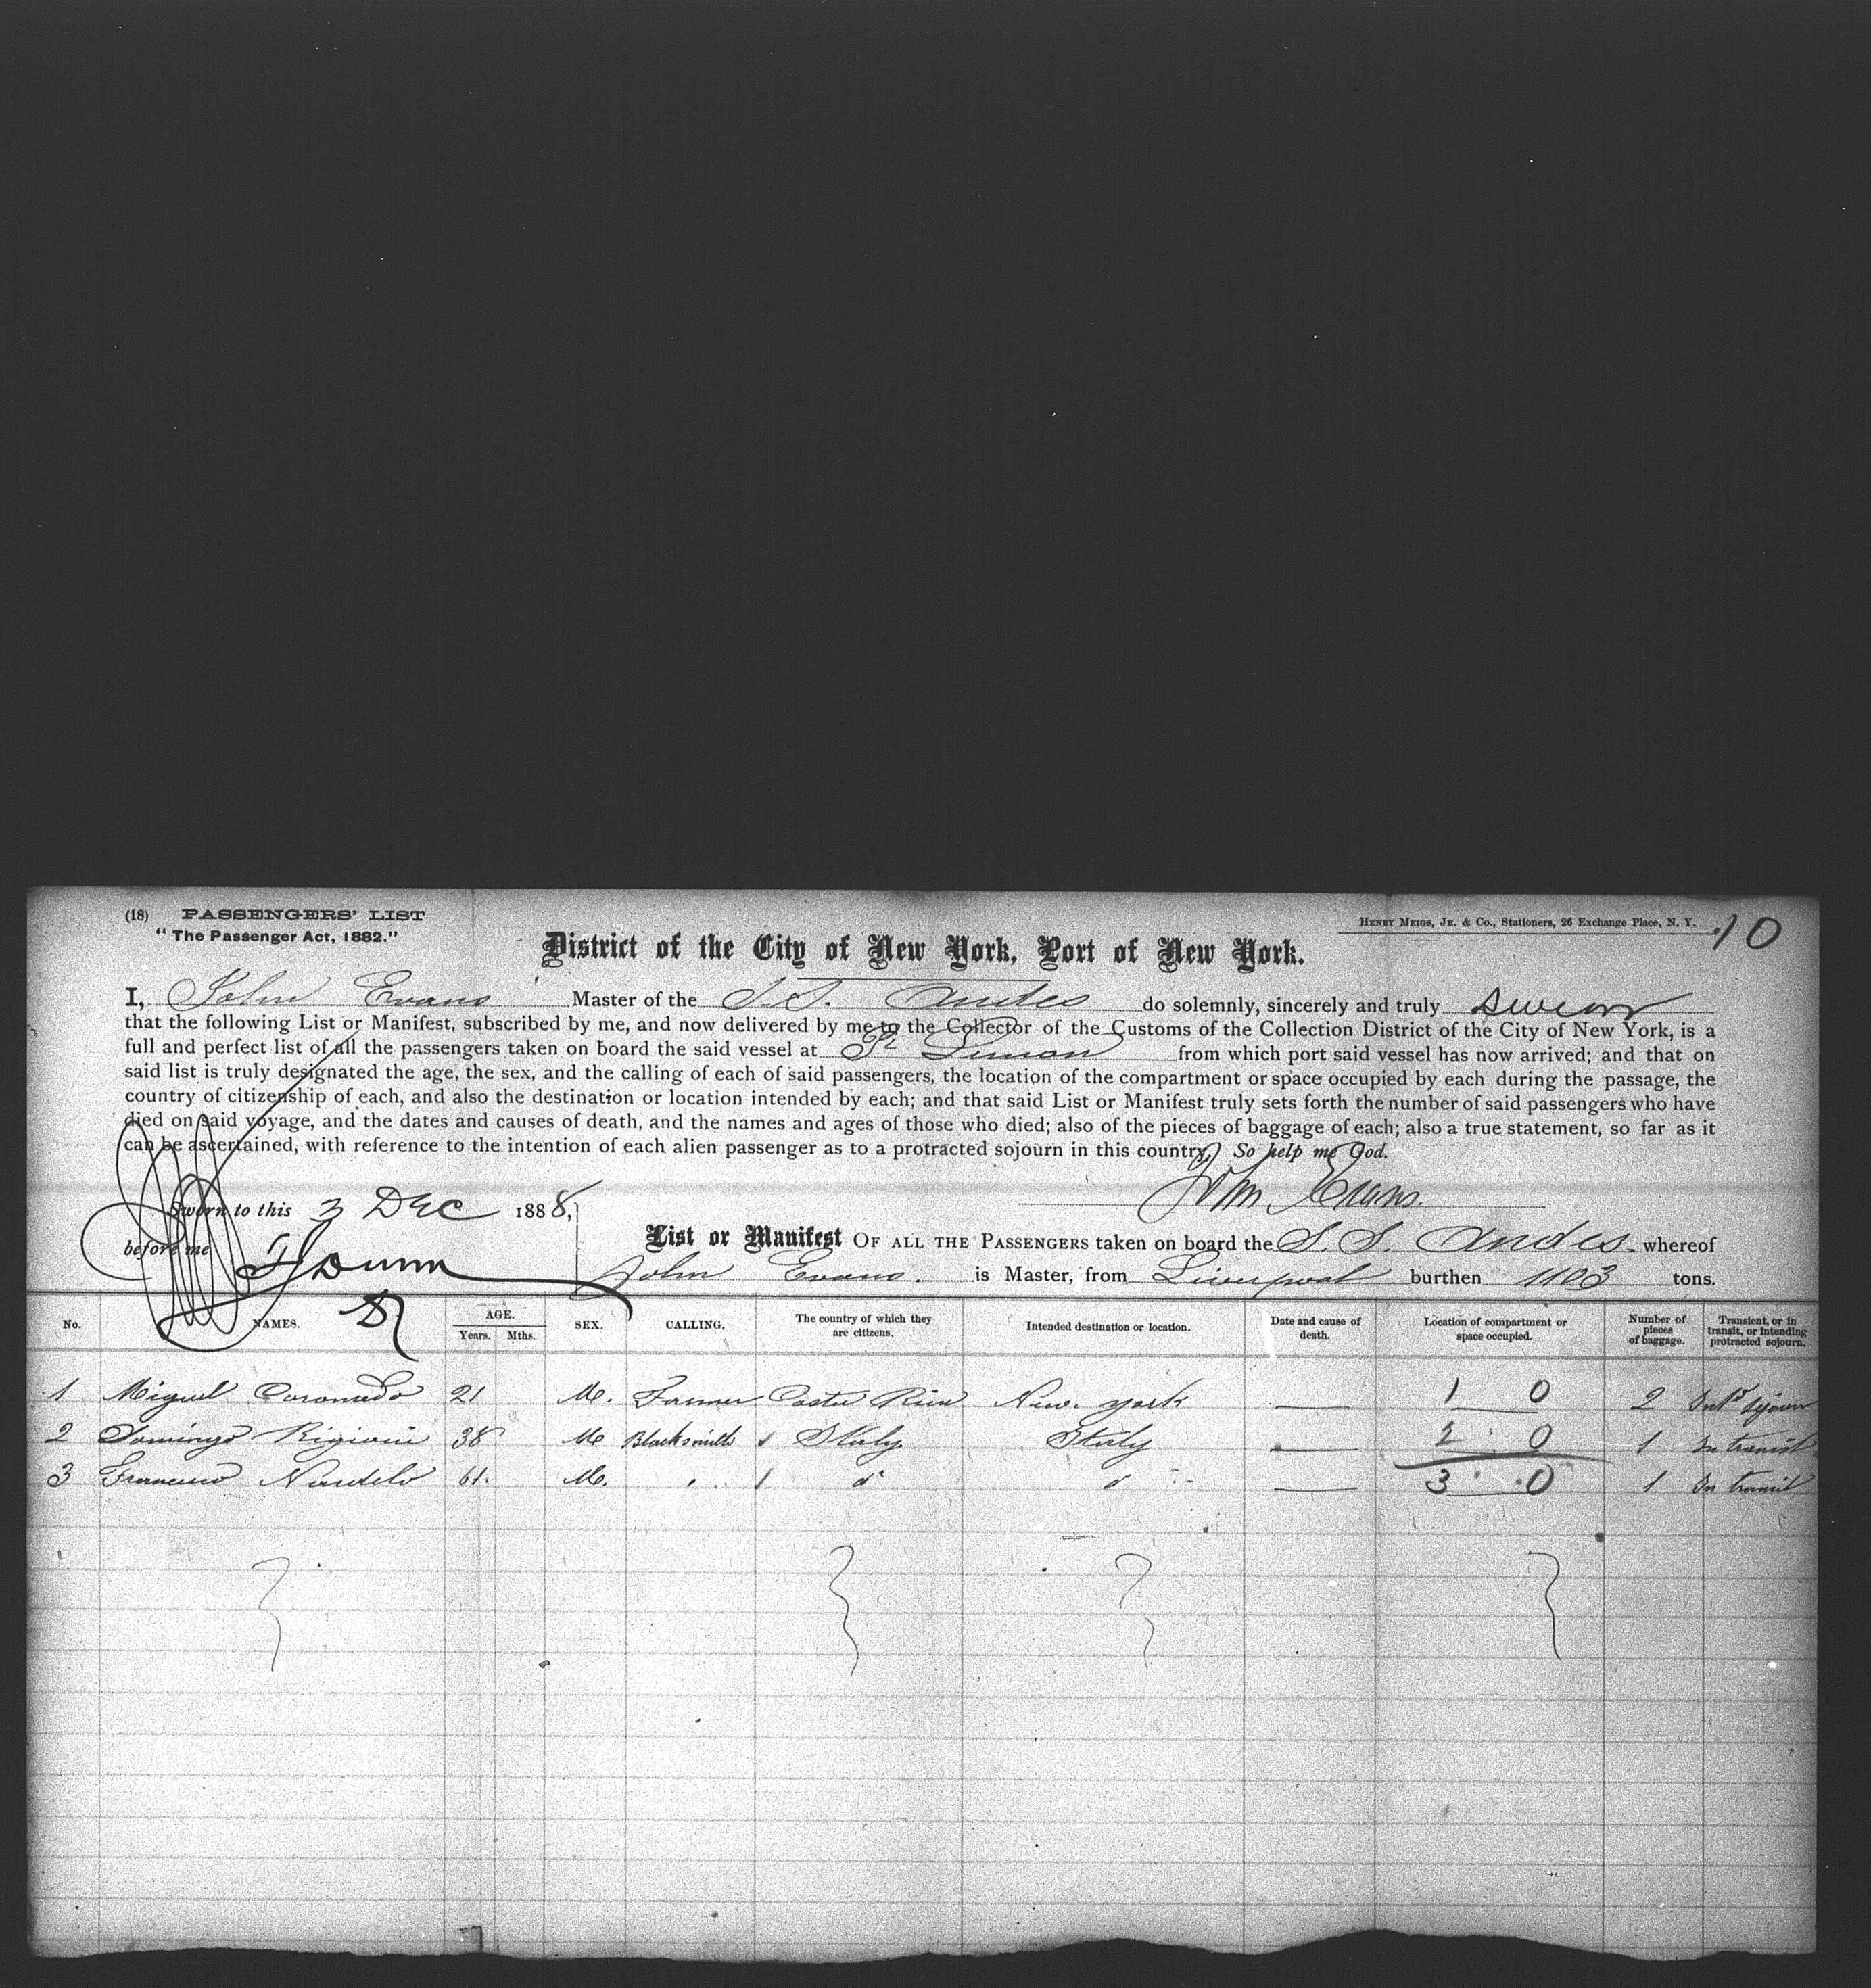 (18) PASSENGERS' LIST
"The Passenger Act, 1882."
HENRY MEIGS, JR. & CO., Stationers, 26 Exchange Place, N. Y.
10
District of the City of New York, Port of New York.
I, John Evans Master of the S.S. Andes do solemnly, sincerely and truly swear
that the following List or Manifest, subscribed by me, and now delivered by me to the Collector of the Customs of the Collection District of the City of New York, is a
full and perfect list of all the passengers taken on board the said vessel at Pt Limon from which port said vessel has now arrived; and that on
said list is truly designated the age, the sex, and the calling of each of said passengers, the location of the compartment or space occupied by each during the passage, the
country of citizenship of each, and also the destination or location intended by each; and that said List or Manifest truly sets forth the number of said passengers who have
died on said voyage, and the dates and causes of death, and the names and ages of those who died; also of the pieces of baggage of each; also a true statement, so far as it
can be ascertained, with reference to the intention of each alien passenger as to a protracted sojourn in this country. So help me God.
Jno Evans.
Sworn to this 3 Dec 1888,
before me
List or Manifest OF ALL THE PASSENGERS taken on board the S. S. Andes whereof
John Evans. is Master, from Liverpool burthen 1103 tons.
No. NAMES. AGE. Years. Mths. SEX. CALLING. The country of which they are citizens. Intended destination or location. Date and cause of death. Location of compartment or space occupied. Number of pieces of baggage. Transient, or in transit, or intending protracted sojourn.
1 Miguel Coronado 21 M. Farmer Costa Rica New York 1 0 2
2 Domingo 38 M Blacksmith Italy Italy 2 0 1 In transit
3 Francisco 61. M. " d° d° 3 0 1 In transit